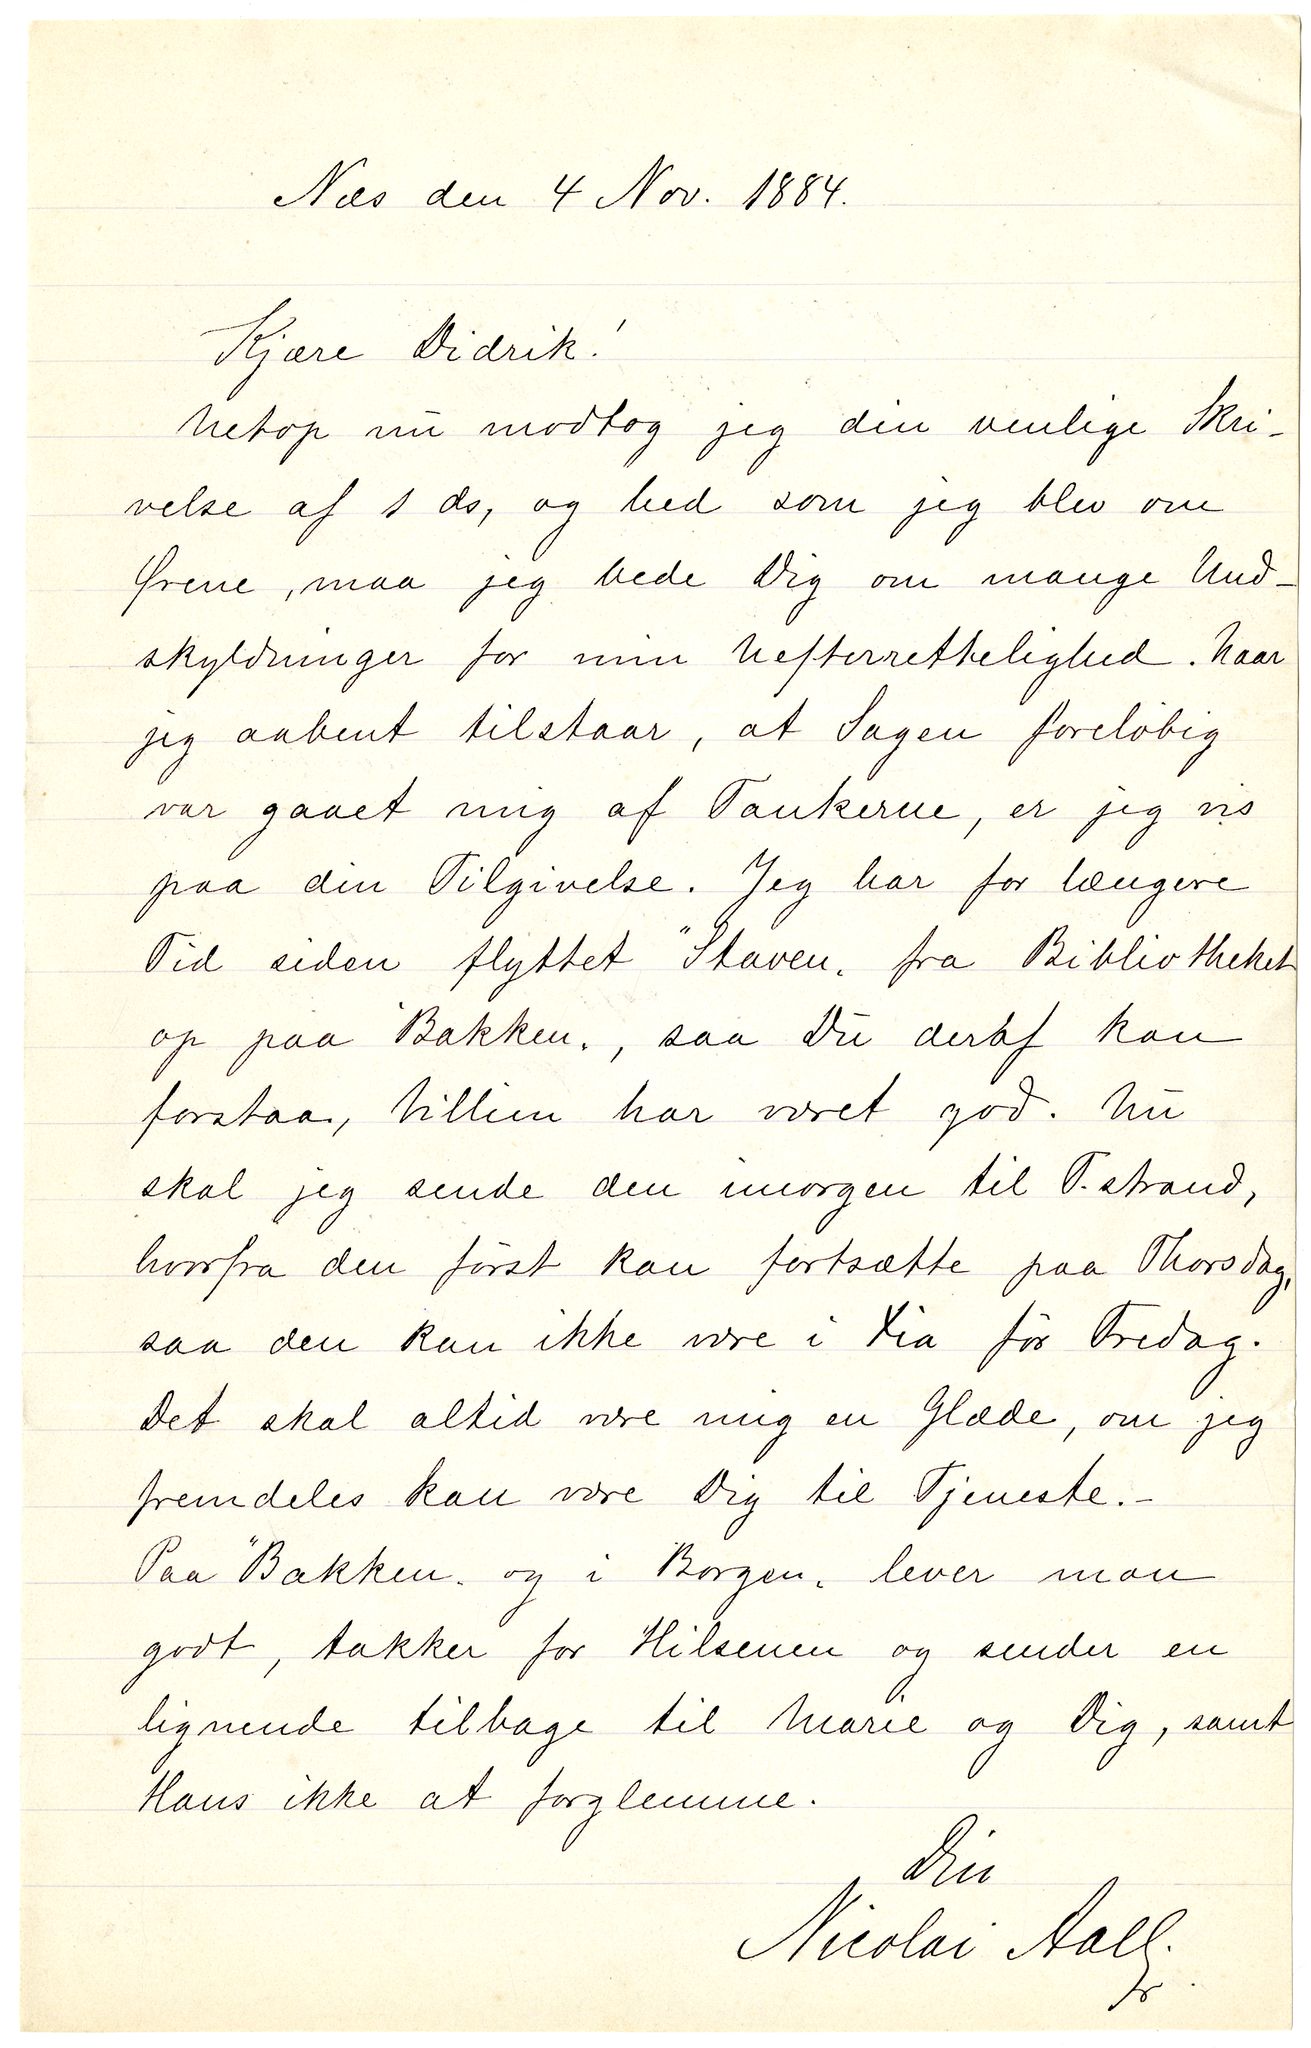 Næs den 4 Nov. 1884.
Kjære Didrik!
Netop nu modtog jeg din venlige Skri-
velse af 1 ds, og hed som jeg blev om
Ørene, maa jeg bede Dig om mange Und-
skyldninger for min Uefterrettelighed. Naar
jeg aabent tilstaar, at Sagen foreløbig
var gaaet mig af Tankerne, er jeg vis
paa din Tilgivelse. Jeg har for længere
Tid siden flyttet "Staven" fra Bibliotheket
op paa "Bakken", saa Du deraf kan
forstaa, Villien har været god. Nu
skal jeg sende den imorgen til T.strand,
hvorfra den først kan fortsætte paa Thorsdag,
saa den kan ikke være i Xia før Fredag.
Det skal altid være mig en Glæde, om jeg
fremdeles kan være Dig til Tjeneste.-
Paa "Bakken" og i "Borgen" lever man
godt, takker for Hilsenen og sender en
lignende tilbage til Marie og Dig, samt
Hans ikke at forglemme.
Din
Nicolai Aall.
jr.